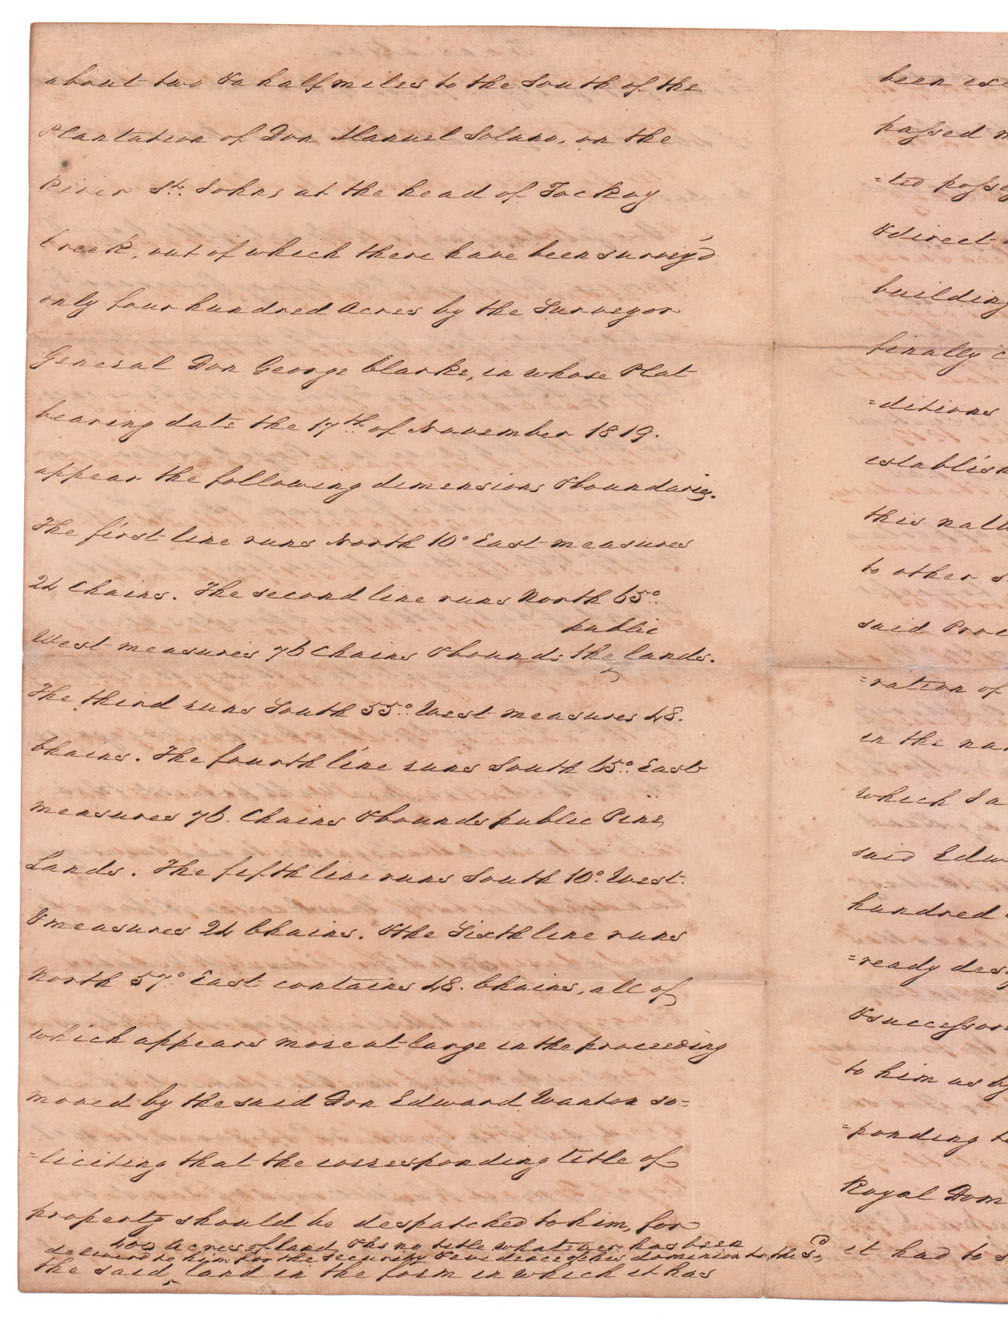 about two & a half miles to the South of the
Plantation of Don Manuel Solano, on the
River St. Johns at the head of Tockoy
Creek, out of which there have been survey'd
only four hundred Acres by the Surveyor
General Don George Clarke, in whose Plat
bearing date the 17th of November 1819.
appear the following dimensions & boundaries.
The first line runs North 10° East measures
24 Chains. The second line runs North 65°
public
West measures 76 Chains & bounds the lands.
The third runs South 55° West measures 48.
Chains. The fourth line runs South 65° East
measures 76. Chains & bounds public Pine
Lands. The fifth line runs South 10° West.
& measures 24 Chains. & the Sixth line runs
North 57° East contains 48. Chains, all of
which appears more at large in the proceeding
moved by the said Don Edward Wanton so=
=liciting that the corresponding title of
property should be despatched to him, for
400 acres of land & as no title whatever has been
delivered to him for the security & evidence of his dominion to the Sd.
the said, land in the form in which it has
been
passed
=ted
& direct
building
finally
=ditions
this
to other
said
=ration of
in the
which I a
said Edw
hundred
=ready des
& successor
to him as by
=ponding t
Royal Dom
it had to s